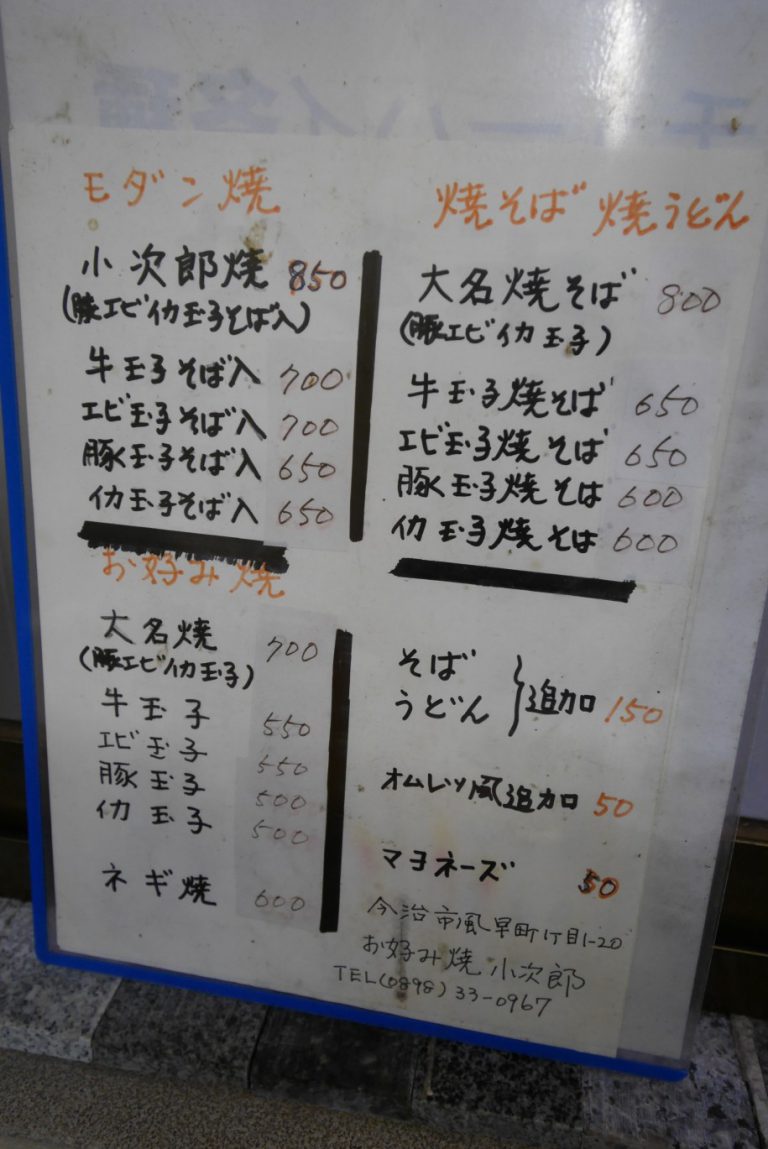 モダン焼
小次郎焼 850
(豚エビイカ玉子そば入)
牛玉子そば入 700
エビ玉子そば入 700
豚玉子そば入 650
イカ玉子そば入 650
焼そば 焼うどん
大名焼そば 800
(豚エビイカ玉子)
牛玉子焼そば 650
エビ玉子焼そば 650
豚玉子焼そば 600
イカ玉子焼そば 600
お好み焼
大名焼 700
(豚エビイカ玉子)
牛玉子 550
エビ玉子 550
豚玉子 500
イカ玉子 500
ネギ焼 600
そば
うどん 追加 150
オムレツ風追加 50
マヨネーズ 50
今治市風早町1丁目1-20
お好み焼 小次郎
TEL(0898)33-0967